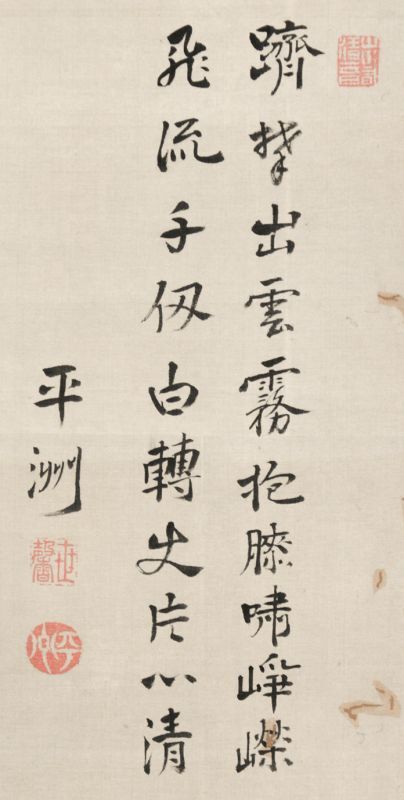 躋攀出雲霧抱膝嘯崢嶸
飛流千仞白轉片心清
平洲
世馨